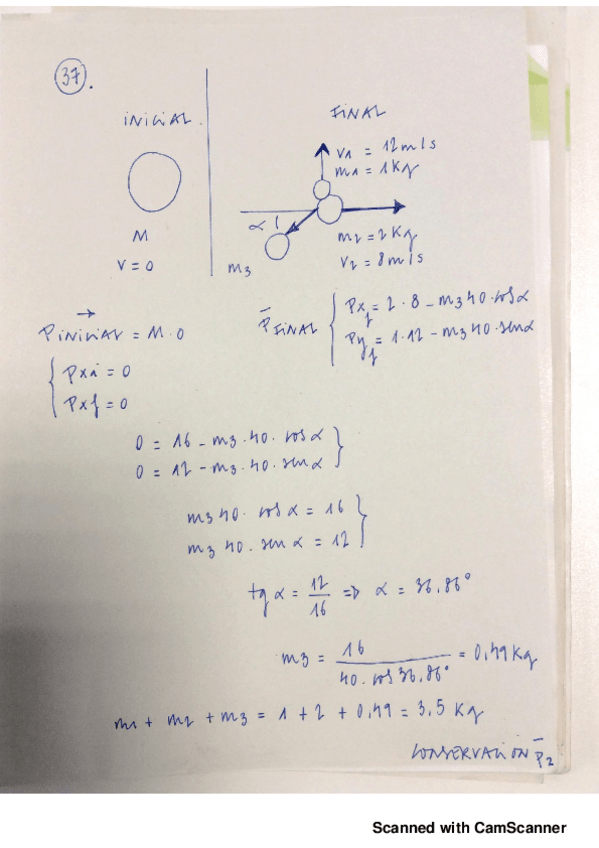 37.
INICIAL.
FINAL
v1 = 12 m/s
m1 = 1 Kg
α
M
v = 0
m3
m2 = 2 Kg
v2 = 8 m/s
P INICIAL = M · 0
Pxi = 0
Pxf = 0
P FINAL
Pxf = 2 · 8 – m3 40 · cos α
Pyf = 1 · 12 – m3 40 · sen α
0 = 16 – m3 · 40 · cos α
0 = 12 – m3 · 40 · sen α
m3 40 · cos α = 16
m3 40 · sen α = 12
tg α = 12/16 => α = 36,86°
m3 = 16/(40 · cos 36,86°) = 0,49 Kg
m1 + m2 + m3 = 1 + 2 + 0,49 = 3,5 Kg
CONSERVACION P2
Scanned with CamScanner